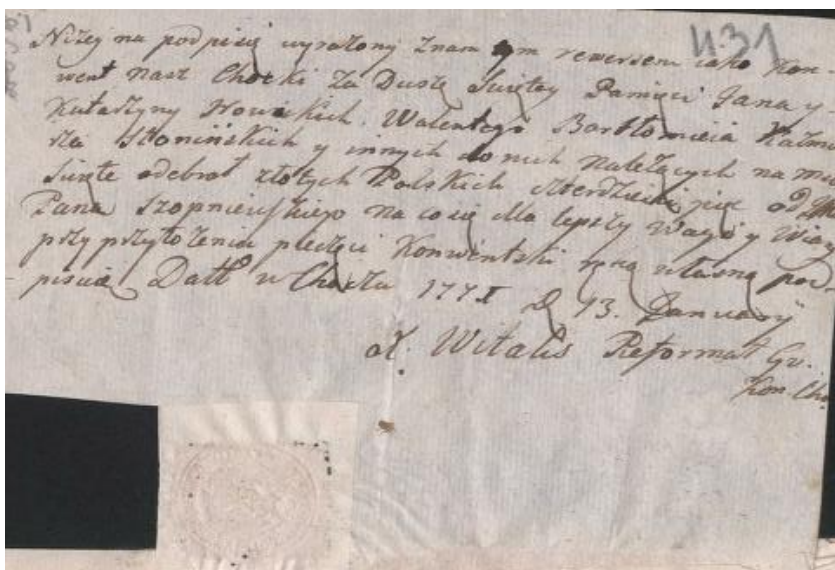 N. 31
Niżej na podpisie wyrażony Znam tym rewersem iako Kon-
went nasz Chocki Za Dusze Swiętey Pamięci Jana y
Katarzyny Nowickich, Walentego Bartłomieia Kaźmi
rza Słonińskich y innych do nich Należących na msze
Swięte odebrał złotych Polskich czterdzieści pięc od
Pana Szopniewskiego na co się dla lepszy Wagi y Wiary
przy przyłożeniu pieczęci Konwentski ręką własną pod-
pisuię Datt w Choczu 1771 D 13. January
X. Witalis Reformat Gv.
Kon. Cho